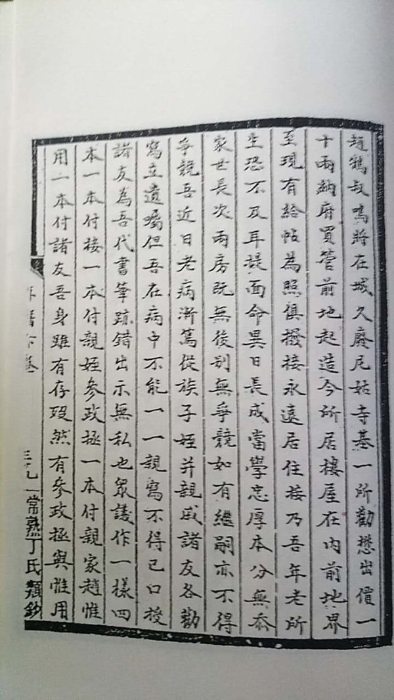 趙鶴叔鳴將在城久廢尼姑寺基一所勸懋出價一
十兩納府買營前地起造今所居樓屋在内前地界
至現有給帖為照俱撥接永遠居住接乃吾年老所
生恐不及耳堤面命異日長成當學忠厚本分無忝
家世長次兩房既無後别無爭競如有繼嗣亦不得
爭競吾近日老病漸篤從族子姪并親戚諸友各勸
寫立遺囑但吾在病中不能一一親寫不得已口授
諸友為吾代書筆跡錯出示無私也眾議作一樣四
本一本付接一本付親姪參政極一本付親家趙惟
用一本付諸友吾身雖有存歿然有參政極與惟用
常熟丁氏類鈔